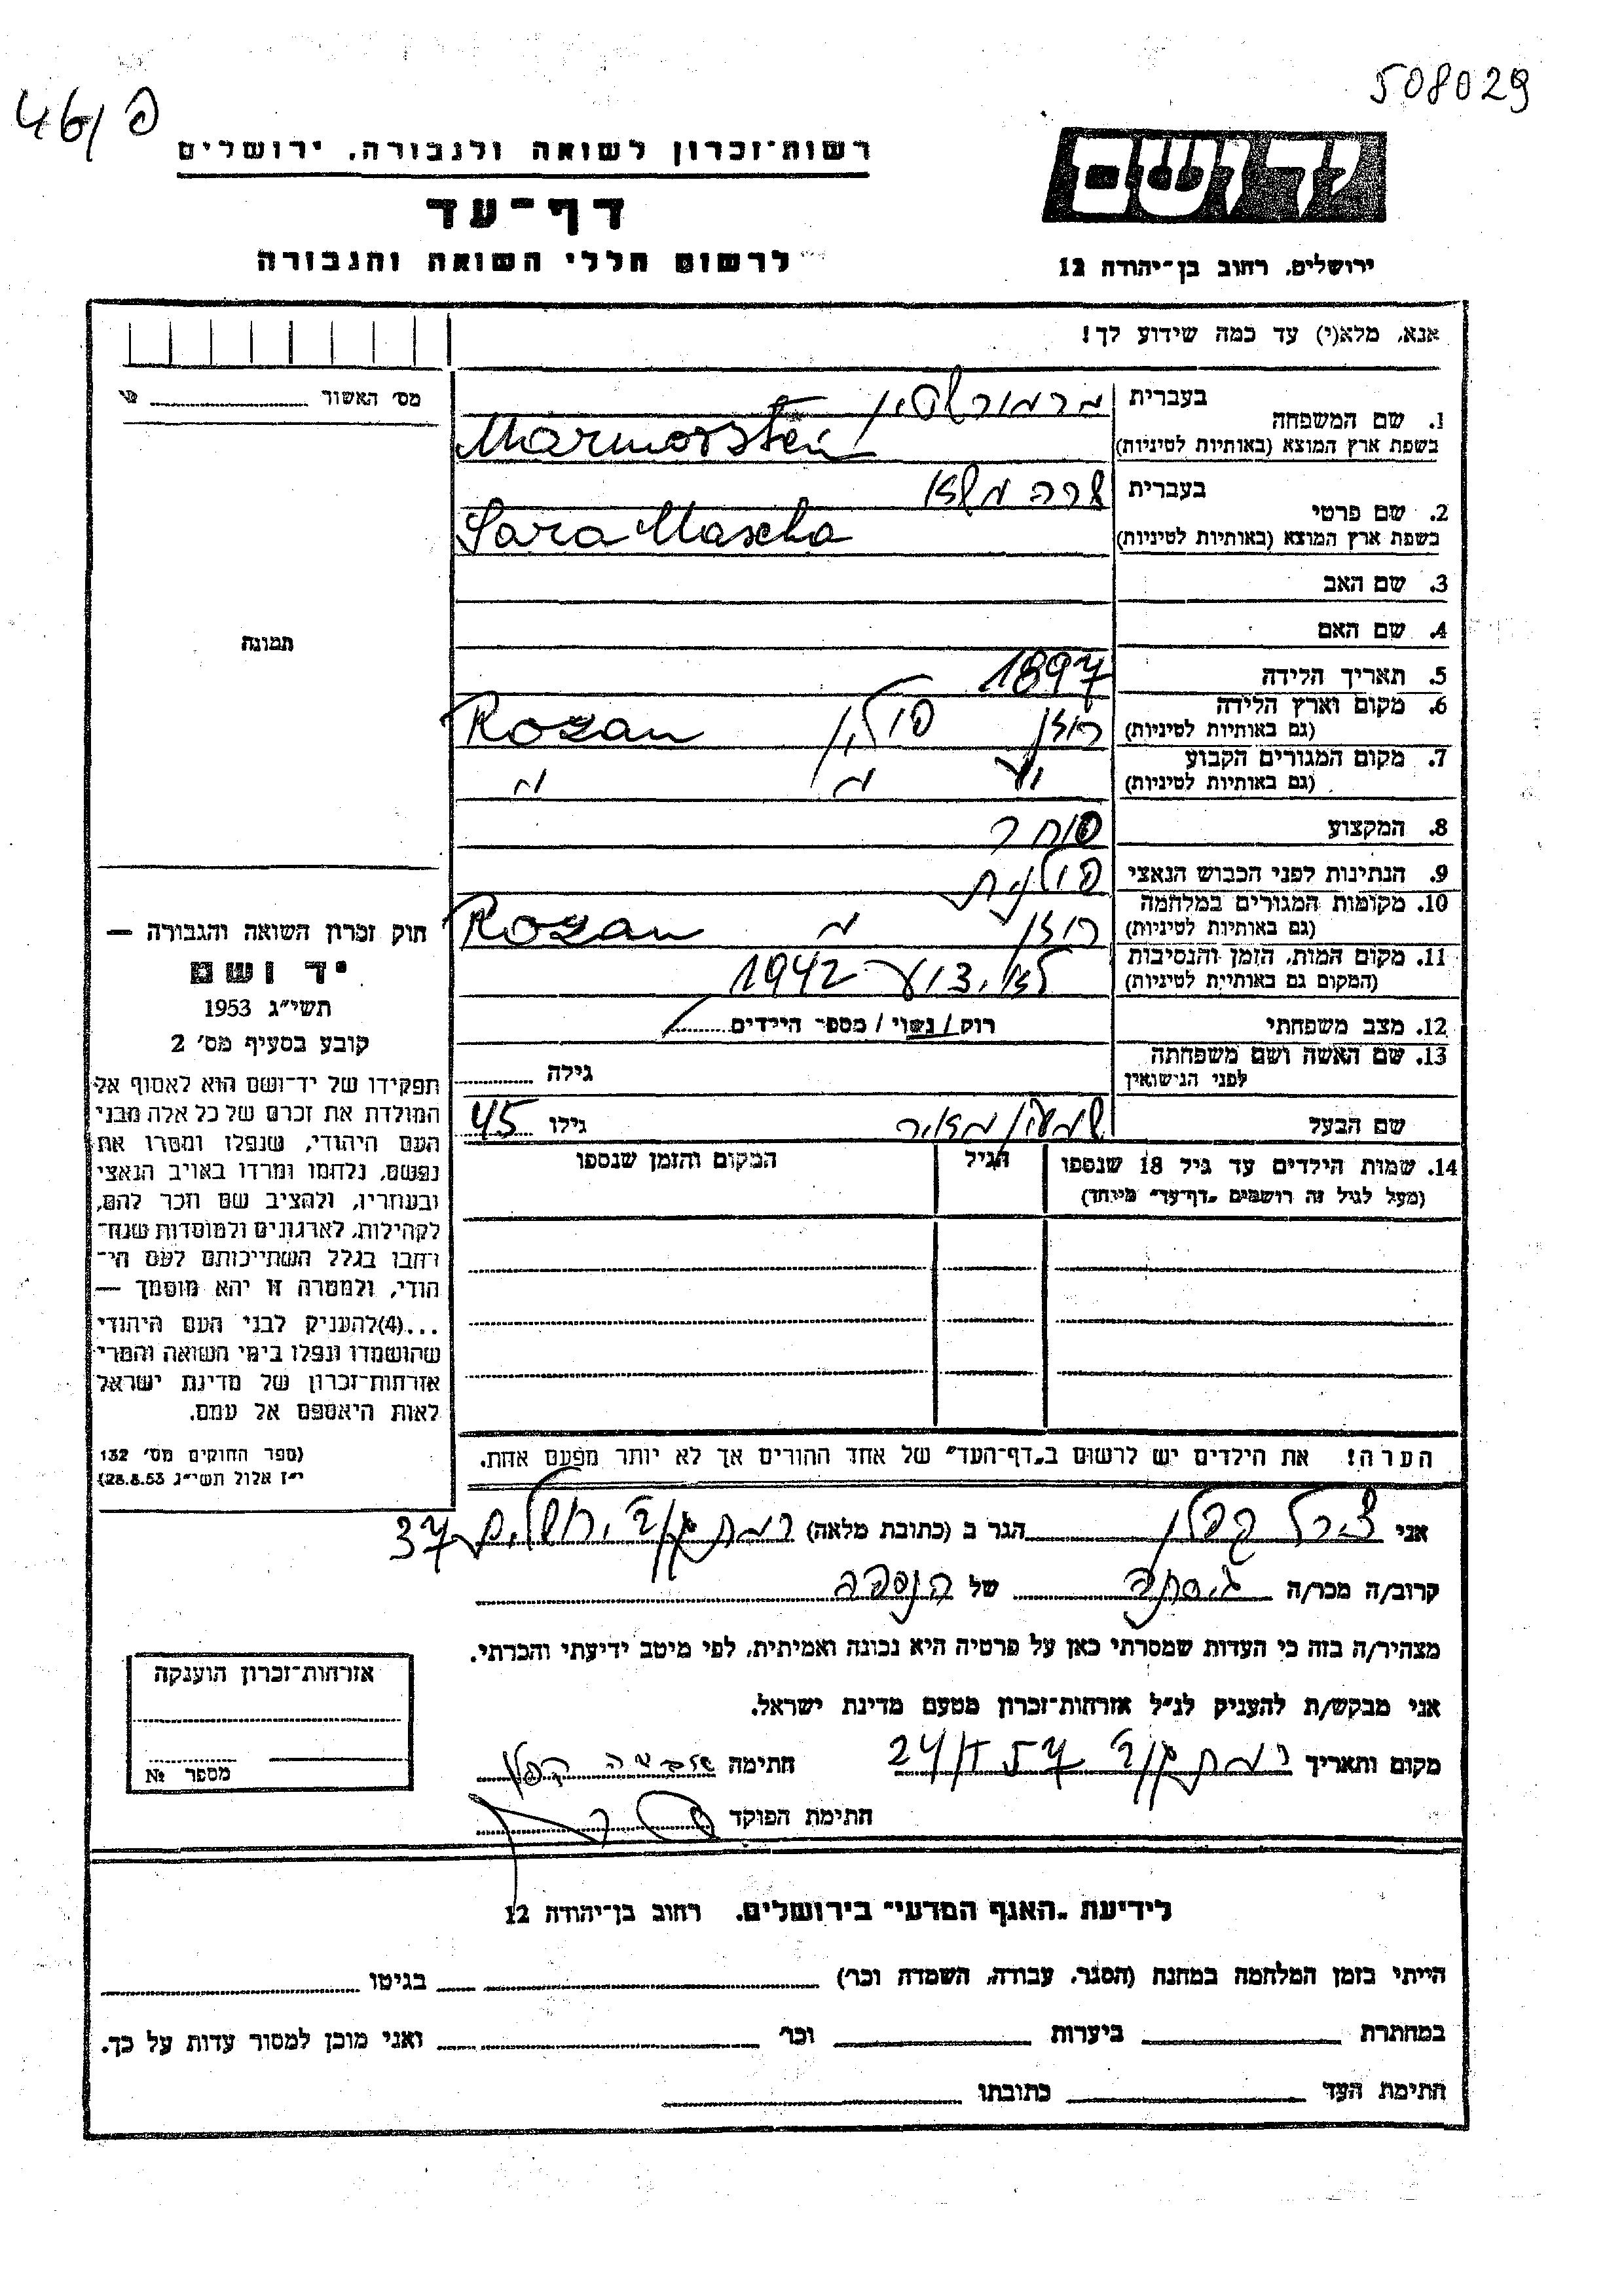 508029
46/פ
יד ושם
ירושלים, רחוב בן־יהודה 12
רשות־זכרון לשואה ולגבורה, ירושלים
דף־עד
לרשום חללי השואה והגבורה
אנא, מלא(י) עד כמה שידוע לך!
מס׳ האשור
1. שם המשפחה
בעברית מרמורשטין
בשפת ארץ המוצא (באותיות לטיניות) Marmorstein
2. שם פרטי
בעברית שרה משא
בשפת ארץ המוצא (באותיות לטיניות) Sara Mascha
3. שם האב
4. שם האם
5. תאריך הלידה 1897
6. מקום וארץ הלידה רוזן פולין Rozan
(גם באותיות לטיניות)
7. מקום המגורים הקבוע
(גם באותיות לטיניות)
8. המקצוע סוחר
9. הנתינות לפני הכבוש הנאצי פולנית
10. מקומות המגורים במלחמה רוזן Rozan
(גם באותיות לטיניות)
11. מקום המות, הזמן והנסיבות לא ידוע 1942
(המקום גם באותיות לטיניות)
12. מצב משפחתי רוק/נשוי/מספר הילדים
13. שם האשה ושם משפחתה
לפני הנישואין גילה
שם הבעל שמעון מאיר גילו 45
14. שמות הילדים עד גיל 18 שנספו הגיל המקום והזמן שנספו
(מעל לגיל זה רושמים „דף־עד״ מיוחד)
הערה! את הילדים יש לרשום ב„דף־העד״ של אחד ההורים אך לא יותר מפעם אחת.
תמונה
חוק זכרון השואה והגבורה —
יד ושם
תשי״ג 1953
קובע בסעיף מס׳ 2
תפקידו של יד־ושם הוא לאסוף אל
המולדת את זכרם של כל אלה מבני
העם היהודי, שנפלו ומסרו את
נפשם, נלחמו ומרדו באויב הנאצי
ובעוזריו, ולהציב שם וזכר להם,
לקהילות, לארגונים ולמוסדות שנח־
רחבו בגלל השתייכותם לעם הי־
הודי, ולמטרה זו יהא מוסמך —
...(4)להעניק לבני העם היהודי
שהושמדו ונפלו בימי השואה והמרי
אזרחות־זכרון של מדינת ישראל
לאות היאספם אל עמם.
(ספר החוקים מס׳ 132
י״ז אלול תשי״ג 28.8.53)
אני צירל קפלן הגר ב (כתובת מלאה) רמת גן רח׳ ירושלים 37
קרוב/ה מכר/ה גיסתה של הנספה
מצהיר/ה בזה כי העדות שמסרתי כאן על פרטיה היא נכונה ואמיתית, לפי מיטב ידיעתי והכרתי.
אני מבקש/ת להעניק לנ״ל אזרחות־זכרון מטעם מדינת ישראל.
מקום ותאריך רמת גן חתימה
חתימת הפוקד
אזרחות־זכרון הוענקה
מספר №
לידיעת „האגף המדעי״ בירושלים, רחוב בן־יהודה 12
הייתי בזמן המלחמה במחנה (הסגר, עבודה, השמדה וכו׳) בגיטו
במחתרת ביערות וכו׳ ואני מוכן למסור עדות על כך.
חתימת העד כתובתו